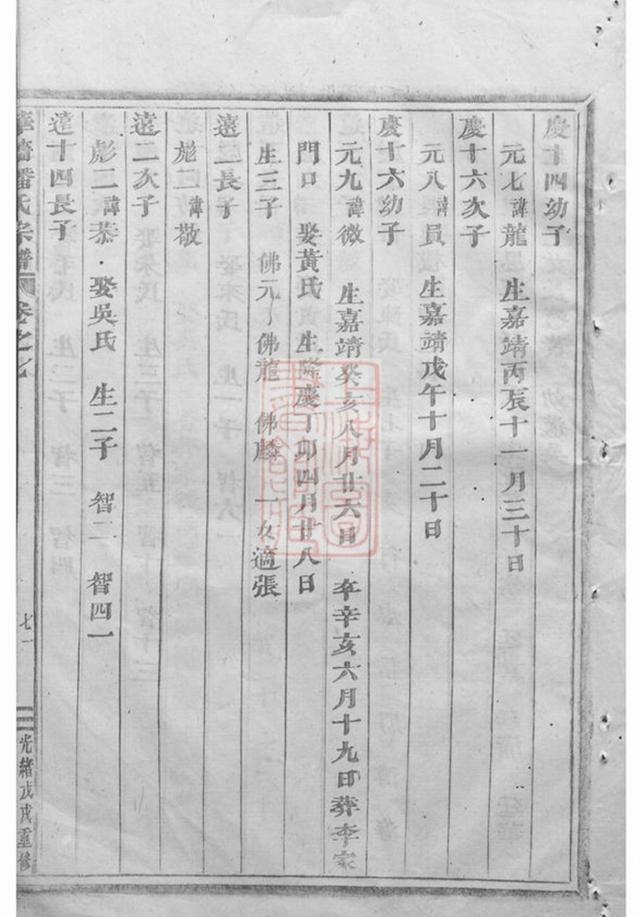 慶十四幼子
元七諱龍 生嘉靖丙辰十一月三十日
慶十六次子
元八諱員 生嘉靖戊午十月二十日
慶十六幼子
元九諱微 生嘉靖癸亥八月廿六日 卒辛亥六月十九日葬李家
門口 娶黃氏 生隆慶丁卯四月廿八日
生三子 佛元 佛龍 佛麟 一女適張
遠二長子
彪二諱敬
遠二次子
彪二諱恭 娶吳氏 生二子 智二 智四一
遠十四長子
潘氏宗譜 卷之七 七一 光緒戊戌重修